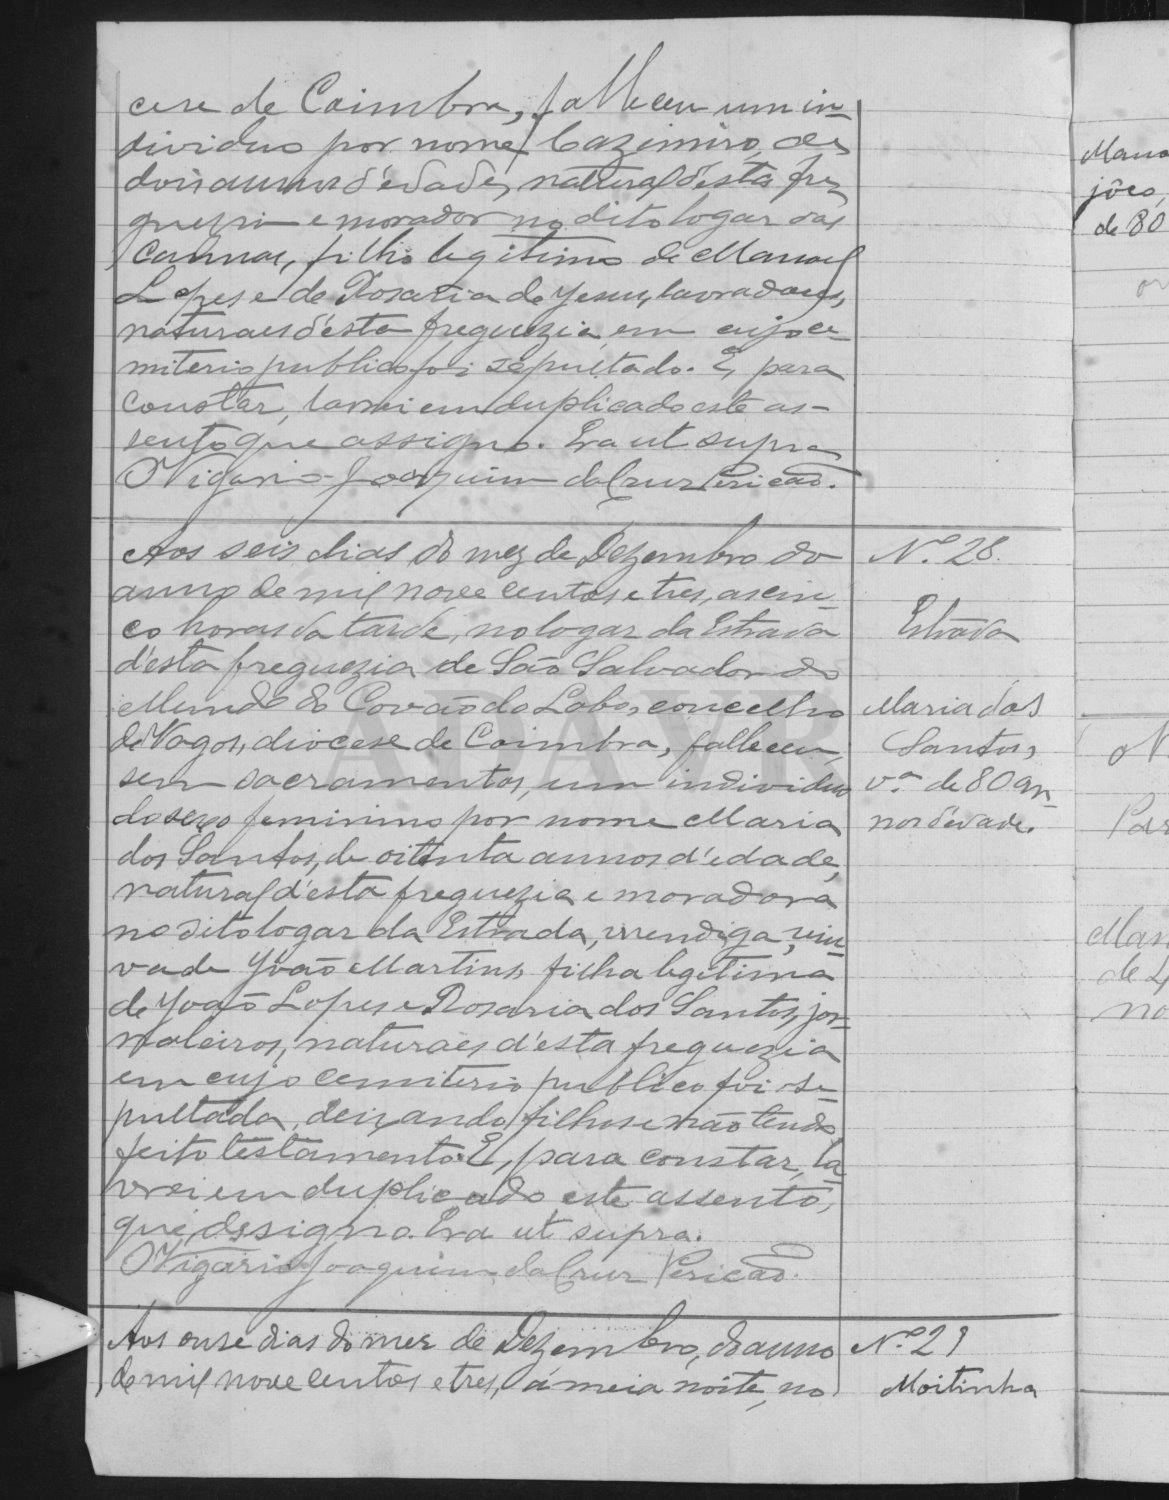 cese de Coimbra, falleceu um in-
dividuo por nome Cazimiro, de
dois annos d'edade, natural d'esta fre-
guezia e morador no dito logar das
Cannas, filho legitimo de Manoel
Lopes e de Rosaria de Jesus, lavradores,
naturaes d'esta freguezia, em cujo ce-
miterio publico foi sepultado. E, para
constar, lavrei em duplicado este as-
sento que assigno. Era ut supra
O Vigario Joaquim da Cruz Pericão.
Aos seis dias do mez de Dezembro do
anno de mil nove centos e tres, as cin-
co horas da tarde, no logar da Estrada
d'esta freguezia de São Salvador do
Mundo do Covão do Lobo, concelho
de Vagos, diocese de Coimbra, falleceu,
sem sacramentos, um individuo
do sexo feminino por nome Maria
dos Santos, de oitenta annos d'edade,
natural d'esta freguezia e moradora
no dito logar da Estrada, mendiga, viu-
va de João Martins, filha legitima
de João Lopes e Rosaria dos Santos, jor-
naleiros, naturaes d'esta freguezia
em cujo cemiterio publico foi se-
pultada, deixando filhos e não tendo
feito testamento. E, para constar, la-
vrei em duplicado este assento,
que assigno. Era ut supra.
O Vigario Joaquim da Cruz Pericão.
Aos onse dias do mez de Dezembro, do anno
de mil nove centos e tres, á meia noite, no
Nº 28.
Estrada
Maria dos
Santos,
vª de 80 an-
nos d'edade.
Nº 29
Moitinha
ADAVR
jões,
de 80